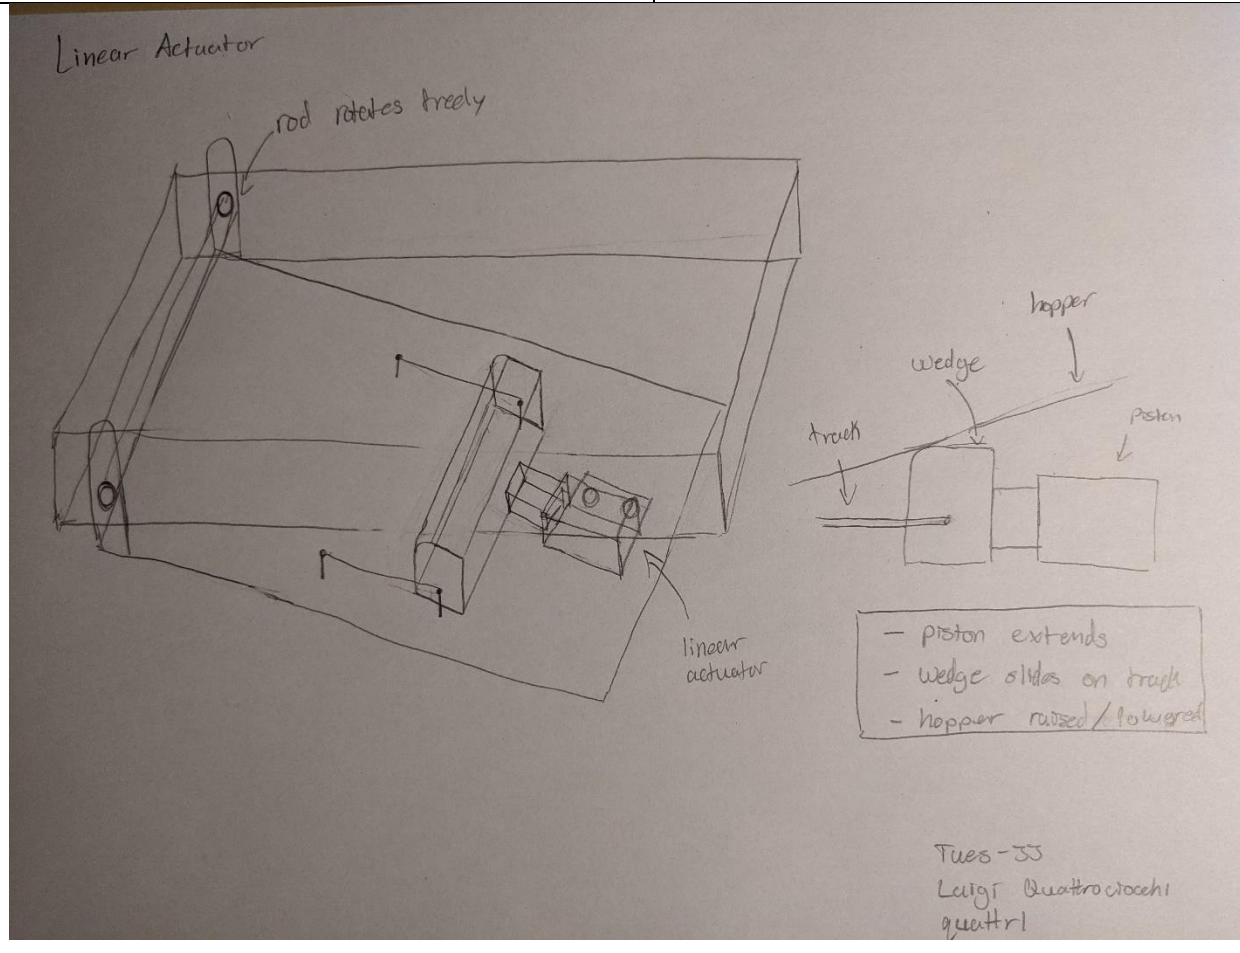 Linear Actuator
rod rotates freely
hopper
wedge
piston
track
linear
actuator
- piston extends
- wedge slides on track
- hopper raised/lowered
Tues-JJ
Luigi Quattrociocchi
quattrl